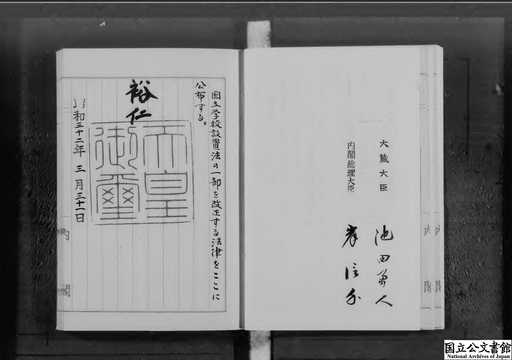 大蔵大臣
池田勇人
内閣総理大臣
岸信介
国立学校設置法の一部を改正する法律をここに
公布する。
裕仁
天皇
御璽
昭和三十二年三月三十一日
内閣
国立公文書館
National Archives of Japan